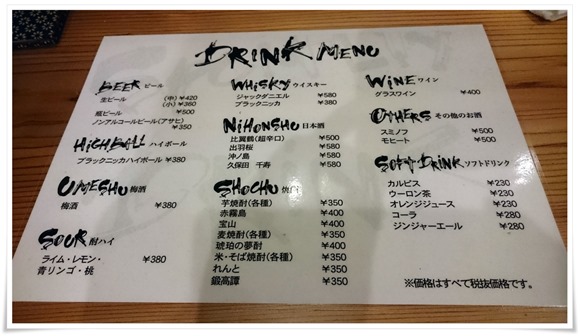 DRINK MENU
BEER ビール
生ビール (中) ¥420
(小) ¥360
瓶ビール ¥500
ノンアルコールビール(アサヒ)
¥350
HIGHBALL ハイボール
ブラックニッカハイボール ¥380
UMESHU 梅酒
梅酒 ¥380
SOUR 酎ハイ
ライム・レモン・
青リンゴ・桃 ¥380
WHISKY ウイスキー
ジャックダニエル ¥580
ブラックニッカ ¥380
NIHONSHU 日本酒
比翼鶴(超辛口) ¥500
出羽桜 ¥580
沖ノ島 ¥580
久保田 千寿 ¥580
SHOCHU 焼酎
芋焼酎(各種) ¥350
赤霧島 ¥400
宝山 ¥400
麦焼酎(各種) ¥350
琥珀の夢酎 ¥400
米・そば焼酎(各種) ¥350
れんと ¥350
鍛高譚 ¥350
WINE ワイン
グラスワイン ¥400
OTHERS その他のお酒
スミノフ ¥500
モヒート ¥500
SOFT DRINK ソフトドリンク
カルピス ¥230
ウーロン茶 ¥230
オレンジジュース ¥230
コーラ ¥280
ジンジャーエール ¥280
※価格はすべて税抜価格です。